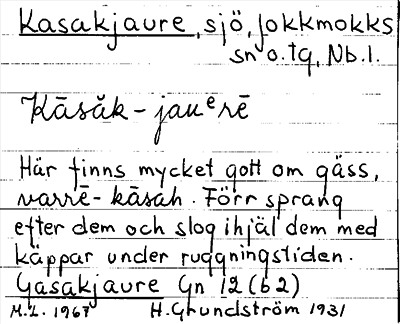 Kasakjaure, sjö, Jokkmokks
sn o. tg, Nb. l.
Kāsăk-jauᵉrē
Här finns mycket gott om gäss,
varrē-kāsah. Förr sprang
efter dem och slog ihjäl dem med
käppar under ruggningstiden.
Gasakjaure Gn 12 (b2)
M.L. 1967 H. Grundström 1931